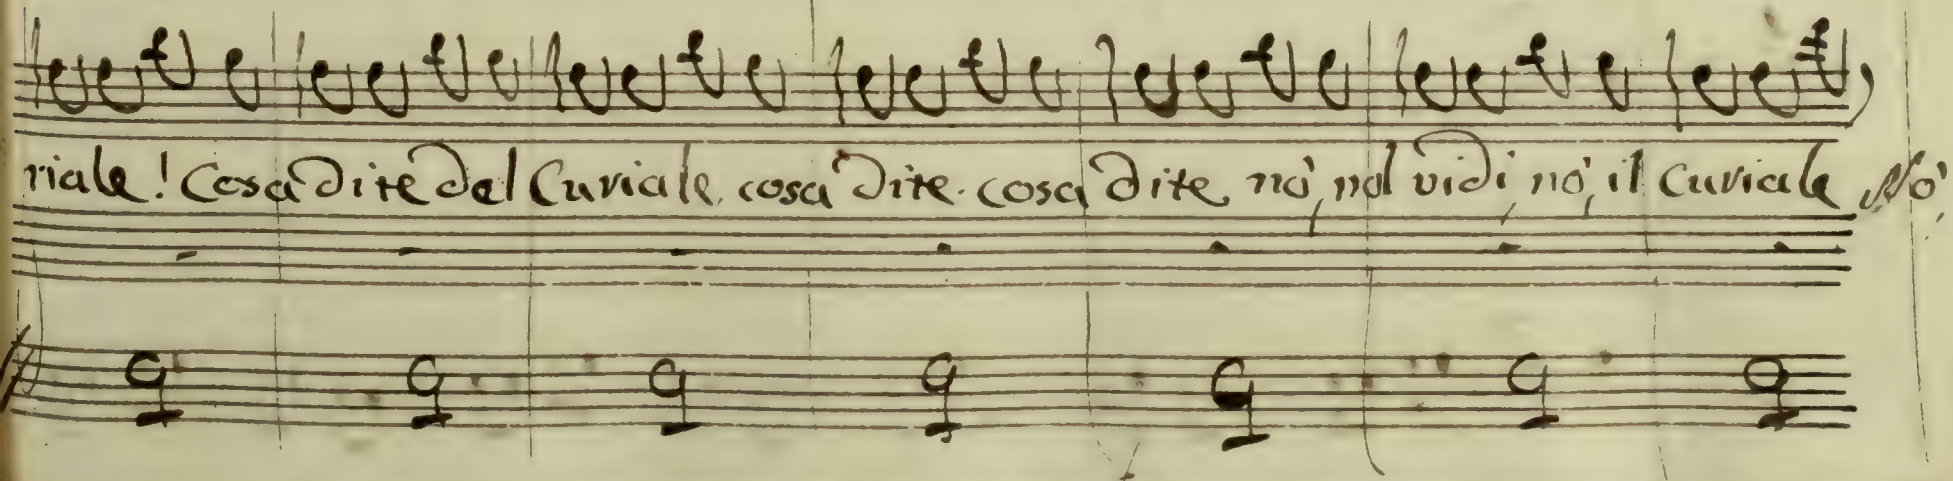 riale! Cosa dite del Curiale cosa dite. cosa dite nò, nol vidi, nò, il Curiale Nò,